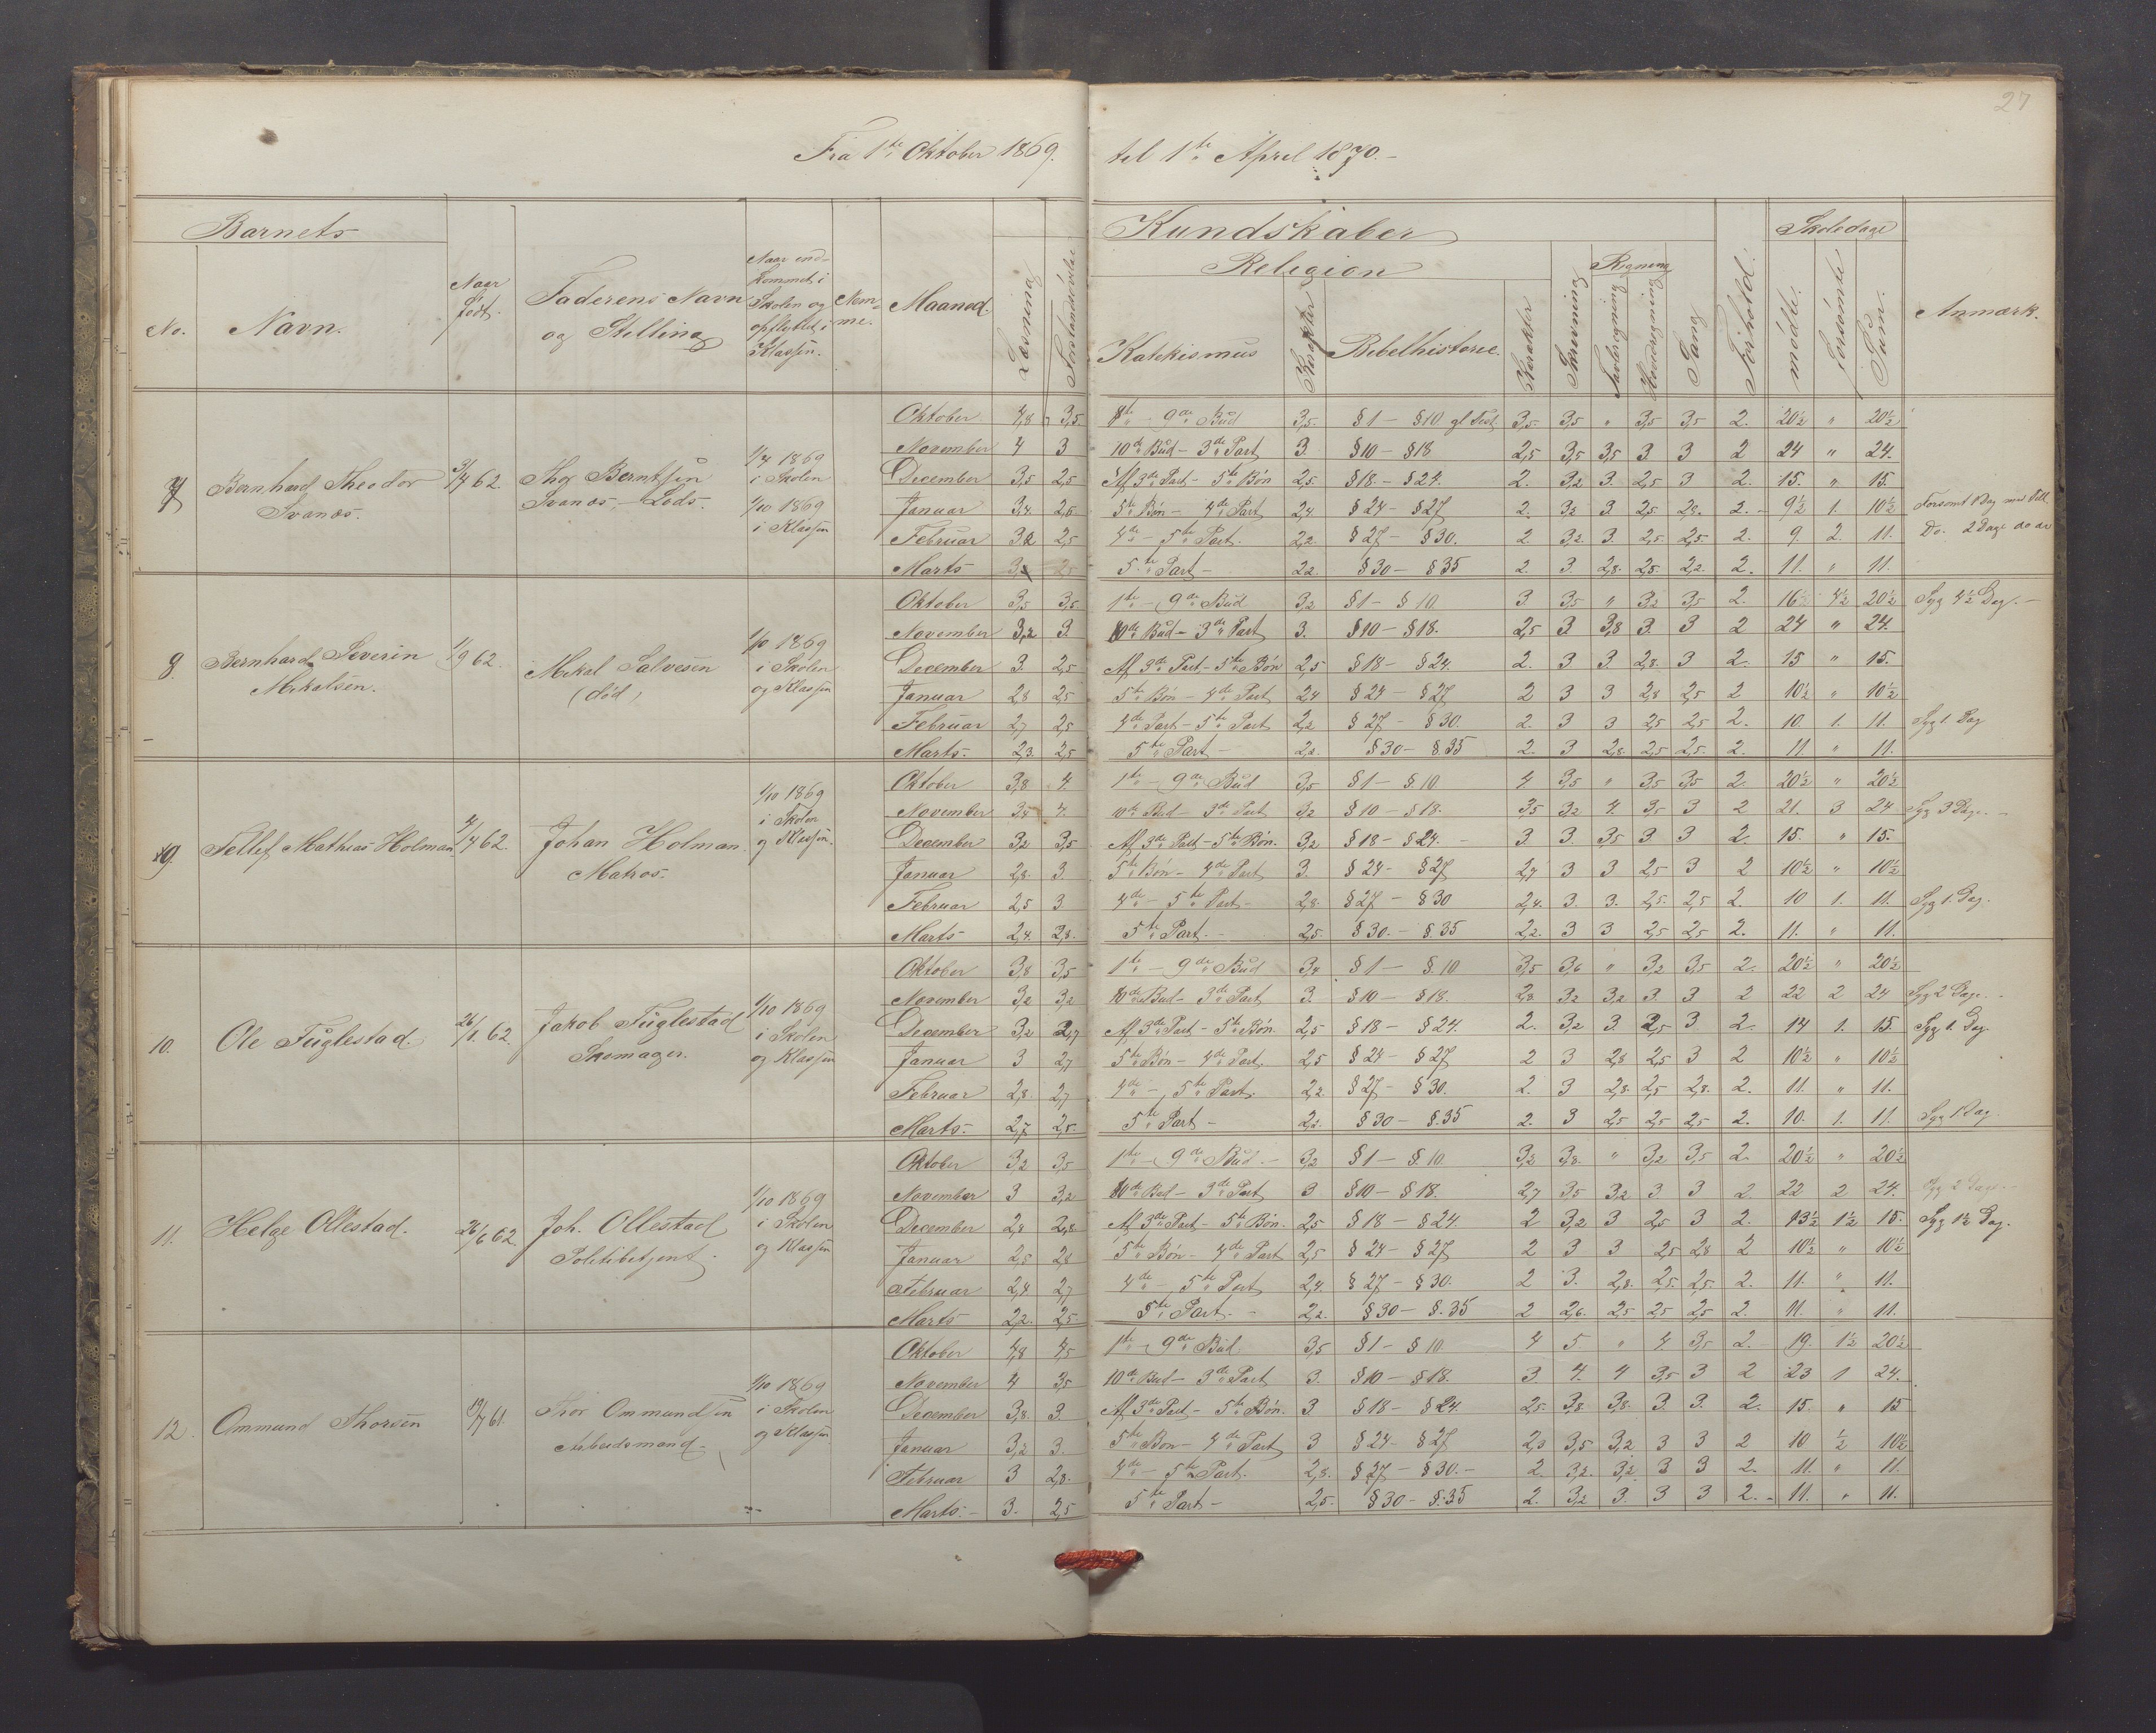 27
Fra 1ste Oktober 1869. til 1ste April 1870.-
Barnets Kundskaber Skoledage
Religion Regning
No. Navn. Naar født. Faderens Navn og Stilling Naar ind-kommet i Skolen og opflyttet i Klassen. Nem-me. Maaned. Læsning Forstandsøvelse Katekismus Karakter Bibelhistorie. Karakter Skrivning Tavleregning Hovedregning Sang Forhold. mødte. forsømte Sum. Anmærk.
7 Bernhard Theodor Svanæs. 3/4 62. Thor Berntsen Svanæs, - Lods. 1/4 1869 i Skolen 1/10 1869 i Klassen
Oktober 4,8 3,5. 8de - 9de Bud 3,5. §1 - §10. gl Test. 3,5. 3,5 " 3,5 3,5 2. 20½ " 20½
November 4 3 10de Bud - 3de Part 3. §10 - §18 2,5 3,5 3,5 3. 3 2 24 " 24.
December 3,5 2,5 Af 3de Part - 5te Bøn 2,5. §18. - §24. 2. 3,2 3. 2,5 3 2. 15. " 15.
Januar 3,4 2,6 5te Bøn - 4de Part 2,4 §24 - §27 2. 3,2 3 2,5. 2,8. 2. - 9½ 1. 10½ Forsømt 1 Dag med Till.
Februar 3,2 2,5 4de - 5te Part. 2,2. §27 - §30. 2. 3,2. 3. 2,5. 2,5. 2. 9. 2. 11. Do. 2 Dage do do
Marts 5te Part - 2,2. §30 - §35 2. 3. 2,8. 2,5. 2,2. 2. 11. " 11.
8. Bernhard Severin Mikalsen. 1/9 62. Mikal Salvesen (død) 1/10 1869 i Skolen og Klassen
Oktober 3,5 3,5. 1ste - 9de Bud 3,2 §1 - §10. 3 3,5 " 3,2 3,5 2. 16 4½ 20½ Syg 4½ Dag. -
November 3,2 3. 10de Bud - 3de Part 3. §10 - §18. 2,5 3 3,8 3. 3 2 24 " 24.
December 3. 2,5 Af 3de Part - 5te Bøn 2,5 §18 - §24. 2. 3 3. 2,8. 3 2. 15 " 15.
Januar 2,8 2,5 5te Bøn - 4de Part 2,4 §24 - §27 2 3 3 2,8 2,5 2 10½ " 10½
Februar 2,7 2,5 4de Part - 5te Part 2,2 §27 - §30. 2. 3 3 2,5 2,5 2. 10. 1. 11. Syg 1. Dag
Marts. 2,3. 2,5 5te Part - 2,2. §30 - §.35 2. 3 2,8. 2,5 2,5. 2. 11. " 11.
9. Tellef Mathias Holman 4/4 62. Johan Holman. Matros. 1/10 1869 i Skolen og Klassen.
Oktober 3,8 4. 1ste - 9de Bud 3,5 §1 - §.10 4 3,5 " 3,5 3,5 2. 20½ " 20½
November 3,4 4. 10de Bud - 3de Part 3,2 §10 - §18. 3,5 3,2 4. 3,5 3 2 21. 3 24 Syg 3 Dage. -
December 3,2 3,5 Af 3de Part - 5te Bøn. 3,2 §18 - §24. - 3. 3. 3,5 3 3 2. 15. " 15.
Januar 2,8. 3. 5te Bøn - 4de Part 3. §24 - §27 2,7 3 3 2,5 3 2 10½ " 10½
Februar 2,5 3 4de - 5te Part - 2,8. §27 - §30 2,4. 3. 3. 2,5. 2,5 2. 10 1. 11. Syg 1. Dag.
Marts 2,4. 2,8. 5te Part. - 2,5. §30. - §.35 2,2. 3 3 2,5 2,5 2. 11. " 11.
10. Ole Fuglestad. 26/1. 62. Jakob Fuglestad Skomager. 1/10 1869 i Skolen og Klassen
Oktober 3,8 3,5 1ste - 9de Bud 3,4 §1 - §.10 3,5 3,6 " 3,2 3,5 2. 20½ " 20½
November 3,2 3,2 10de Bud - 3de Part 3. §10 - §18. 2,8 3,2 3,2 3. 3 2 22 2 24 Syg 2 Dage. -
December 3,2 2,7 Af 3de Part - 5te Bøn. 2,5 §18 - §24. 2. 3,2 3. 2,5 3 2. 14 1. 15. Syg 1. Dag
Januar 3 2,7 5te Bøn - 4de Part. 2,5 §24 - §27 2 3 2,8 2,5 3 2 10½ " 10½
Februar 2,8. 2,7 4de - 5te Part. 2,2 §27 - §30. 2. 3 2,8. 2,5 2,8. 2. 11. " 11.
Marts. 2,7 2,5. 5te Part - 2,2. §30 - §.35 2. 3 2,5 2,5 2,5 2. 10. 1. 11. Syg 1 Dag.
11. Helge Ollestad. 26/6 62 Joh. Ollestad Politibetjent. 1/10 1869 i Skolen og Klassen
Oktober 3,2 3,5 1ste - 9de Bud. - 3,2 §1 - §.10. 3,2 3,8. " 3,2 3,5 2. 20½ " 20½
November 3 3,2 10de Bud - 3de Part 3 §10 - §18. 2,7 3,5 3,2 3. 3 2. 22 2 24. Syg 2 Dage. -
December 2,8 2,8 Af 3de Part - 5te Bøn. 2,5 §18 - §24. 2 3,2 3 2,5 3 2. 13½ 1½ 15. Syg 1½ Dag.
Januar 2,5 2,8 5te Bøn - 4de Part 2,5 §24 - §27 2 3 3 2,5 2,8 2 10½ " 10½
Februar 2,4 2,7 4de - 5te Part 2,4. §27 - §30. 2 3. 2,8. 2,5. 2,5. 2. 11. " 11.
Marts 2,2. 2,5. 5te Part. - 2,2. §30 - §.35 2 2,6. 2,5 2,5 2,5 2. 11. " 11.
12. Ommund Thorsen 19/7 61. Thor Ommundsen Arbeidsmand. 1/10 1869 i Skolen og Klassen
Oktober 4,8 4,5 1ste - 9de Bud. 3,5 §1 - §10. 4 5. " 4. 3,5 2. 19. 1½ 20½
November 4 3,5 10de Bud - 3de Part 3. §10 - §18. 3 4. 4 3,5 3 2 23 1 24.
December 3,8. 3. Af 3de Part - 5te Bøn. 3 §18 - §24. 2,5. 3,8. 3,8. 3. 3. 2. 15. " 15
Januar 3,2 3. 5te Bøn - 4de Part 3 §24 - §27 2,3 3,5 3,2 3 3 2 10 ½ 10½
Februar 3 2,8. 4de - 5te Part. 2,8. §27 - §30. - 2. 3,2. 3,2. 3 3 2. 11. " 11.
Marts. - 3. 2,5 5te Part - 2,5. §30 - §.35 2. 3,2 3. 3 3 2. - 11. " 11.